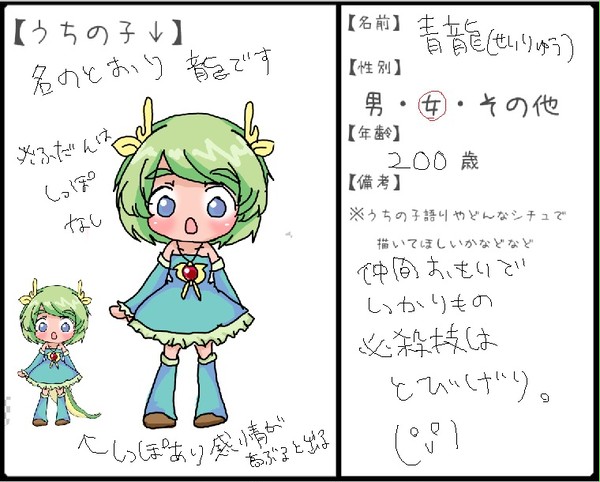 【うちの子↓】
名のとおり 龍です
※ふだんは
しっぽ
なし
↖しっぽあり感情が
あぶると出る
【名前】 青龍(せいりゅう)
【性別】
男・女・その他
【年齢】
200 歳
【備考】
※うちの子語りやどんなシチュで
描いてほしいかなどなど
仲間おもいで
しっかりもの
必殺技は
とびげり。